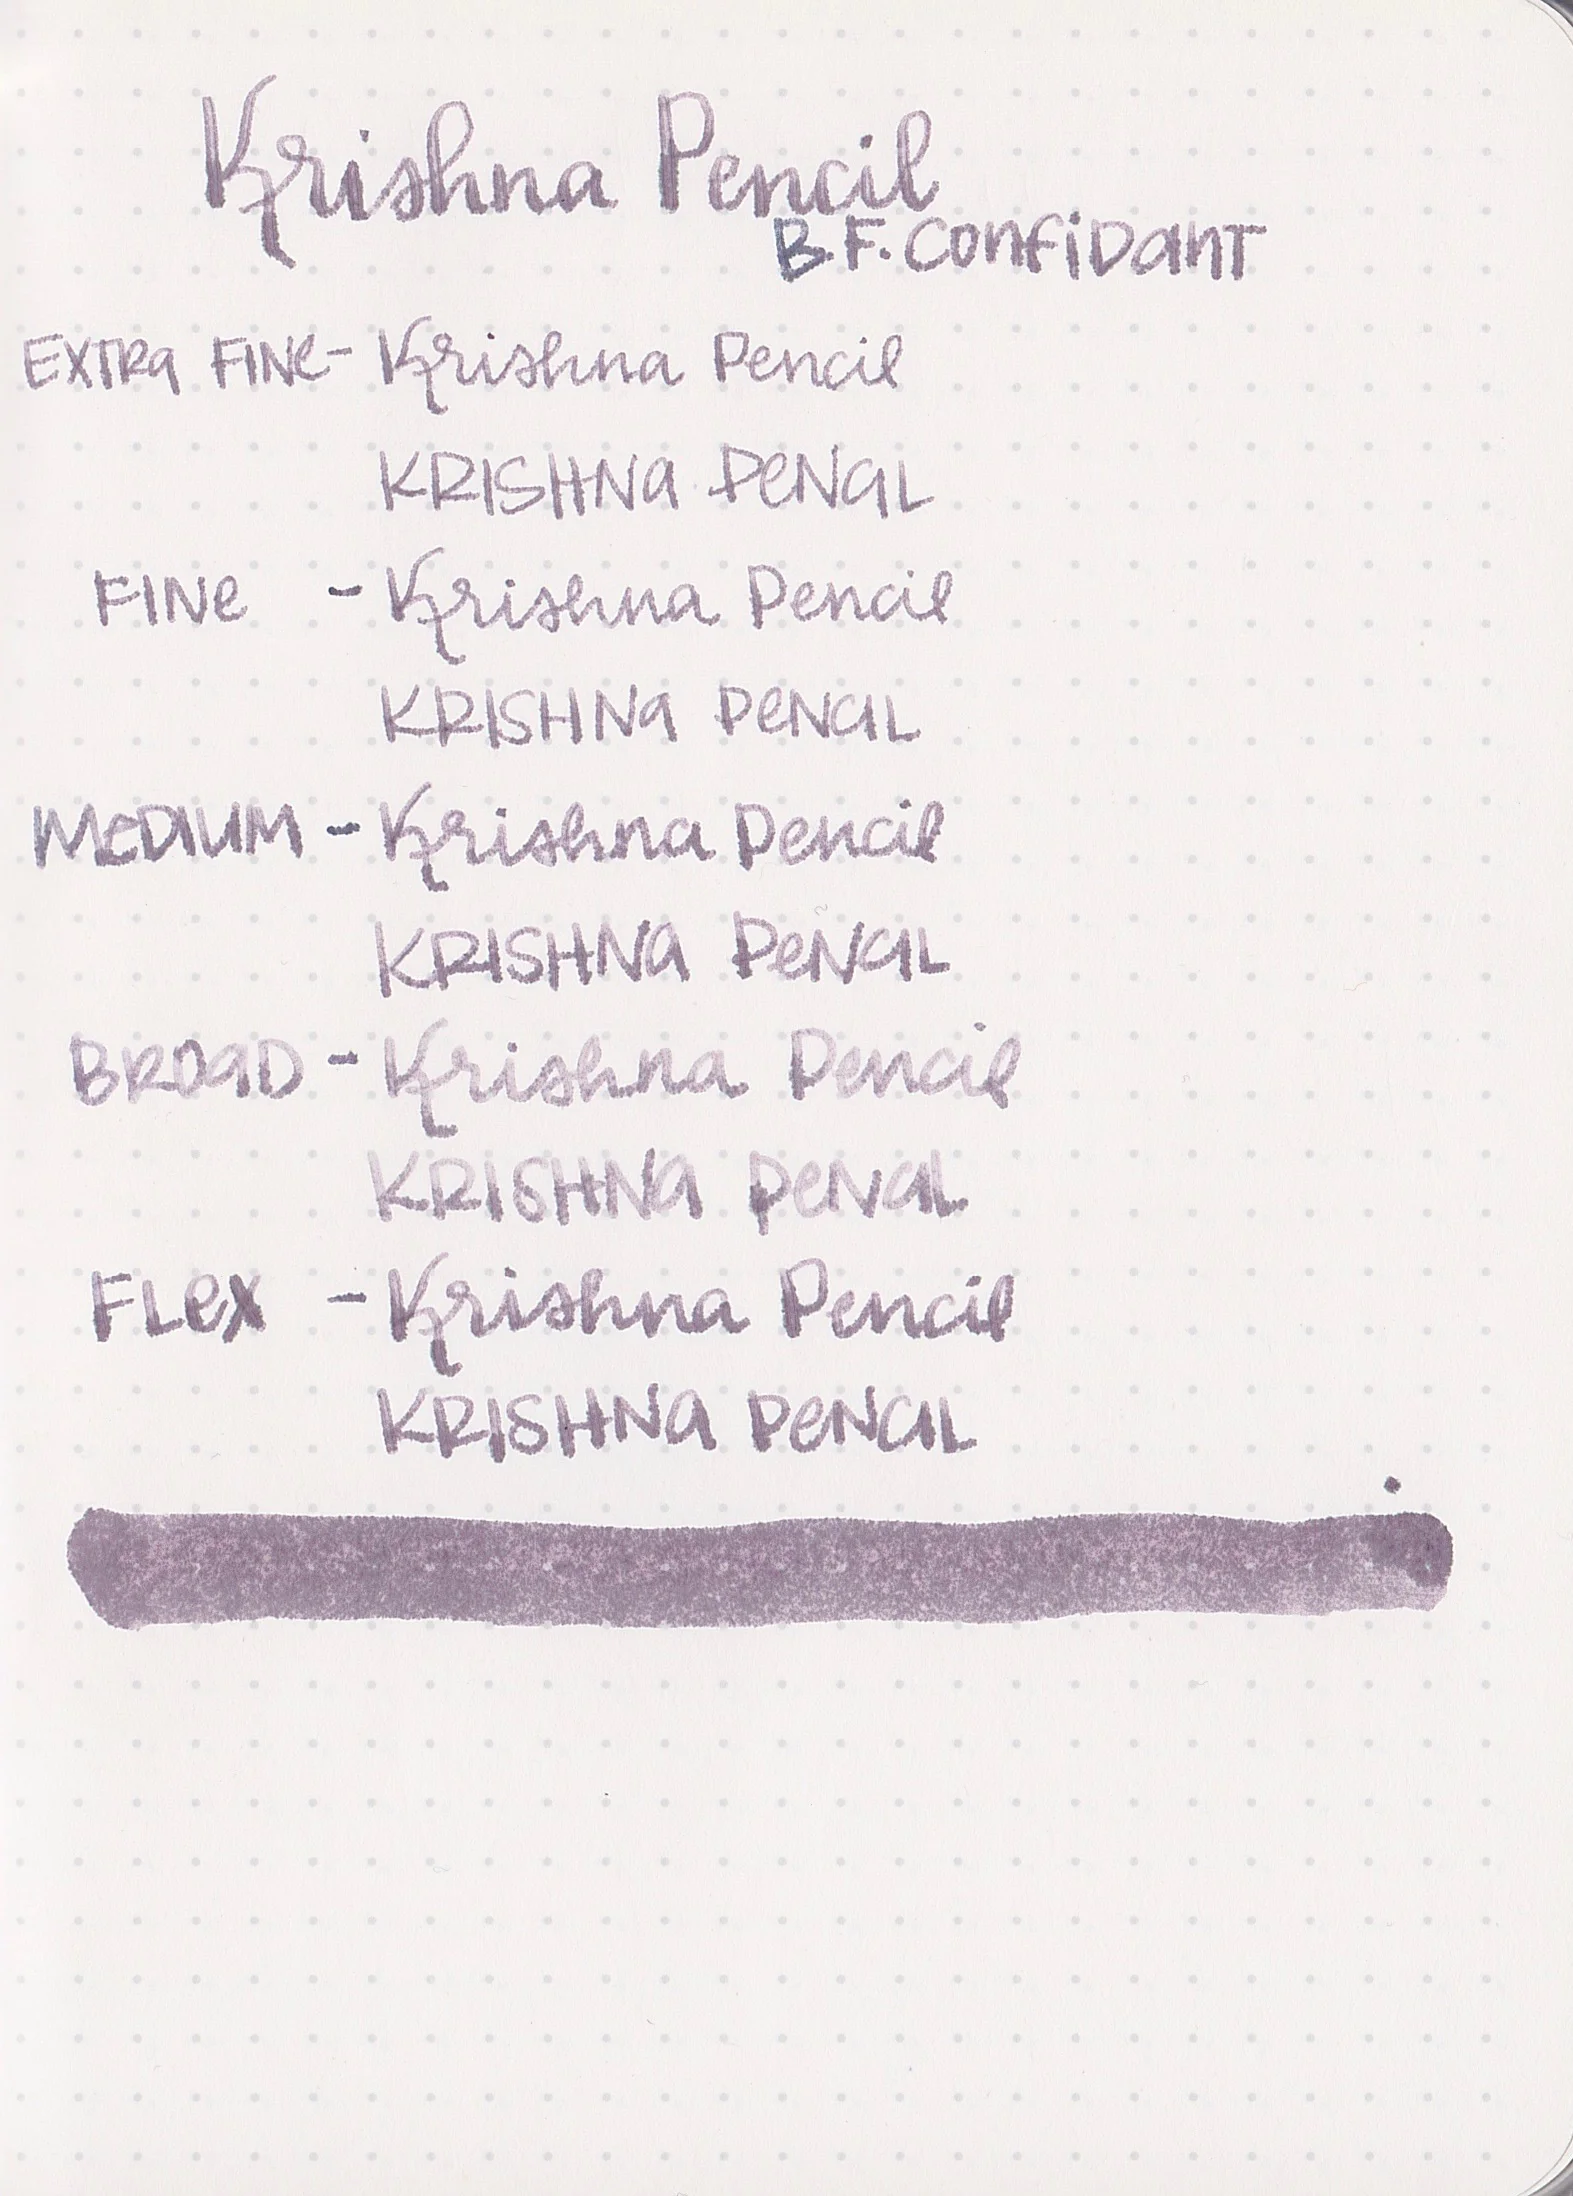 Krishna Pencil
B.F. Confidant
Extra Fine - Krishna Pencil
KRISHNA PENCIL
FINE - Krishna Pencil
KRISHNA PENCIL
MEDIUM - Krishna Pencil
KRISHNA PENCIL
BROAD - Krishna Pencil
KRISHNA PENCIL
FLEX - Krishna Pencil
KRISHNA PENCIL